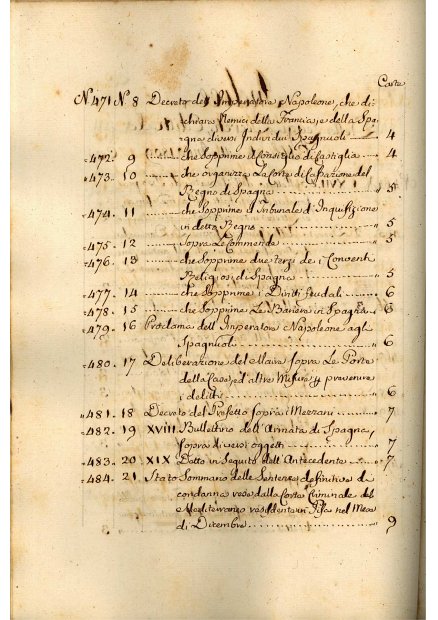 Carte
N. 471 N. 8 Decreto dell'Imperatore Napoleone, che di-
chiara Nemici della Francia, e della Spa-
gna diversi Individui Spagnuoli 4
472. 9 che Sopprime il Consiglio di Castiglia 4
473. 10 che organizza La Corte di Cassazione del
Regno di Spagna 5
474. 11 che Sopprime il Tribunale d'Inquisizione
in detto Regno 5
475. 12 Sopra Le Commende 5
476. 13 che Sopprime due terzi dei Conventi
Religiosi di Spagna 5
477. 14 che Sopprime i Diritti feudali 6
478. 15 che Sopprime Le Barriere in Spagna 6
479. 16 Proclama dell'Imperatore Napoleone agli
Spagnuoli 6
480. 17 Deliberazione del Maire sopra Le Porte
della Case, ed altre Misure p prevenire
i delitti 6
481. 18 Decreto del Prefetto sopra i Mezzani 7
482. 19 XVIII Bullettino dell'Armata di Spagna,
sopra diversi oggetti 7
483. 20 XIX Detto in Seguito dell'Antecedente 7
484. 21 Stato Sommario delle Sentenze definitive di
condanna rese dalla Corte Criminale del
Mediterraneo residente in Pisa nel Mese
di Dicembre 9